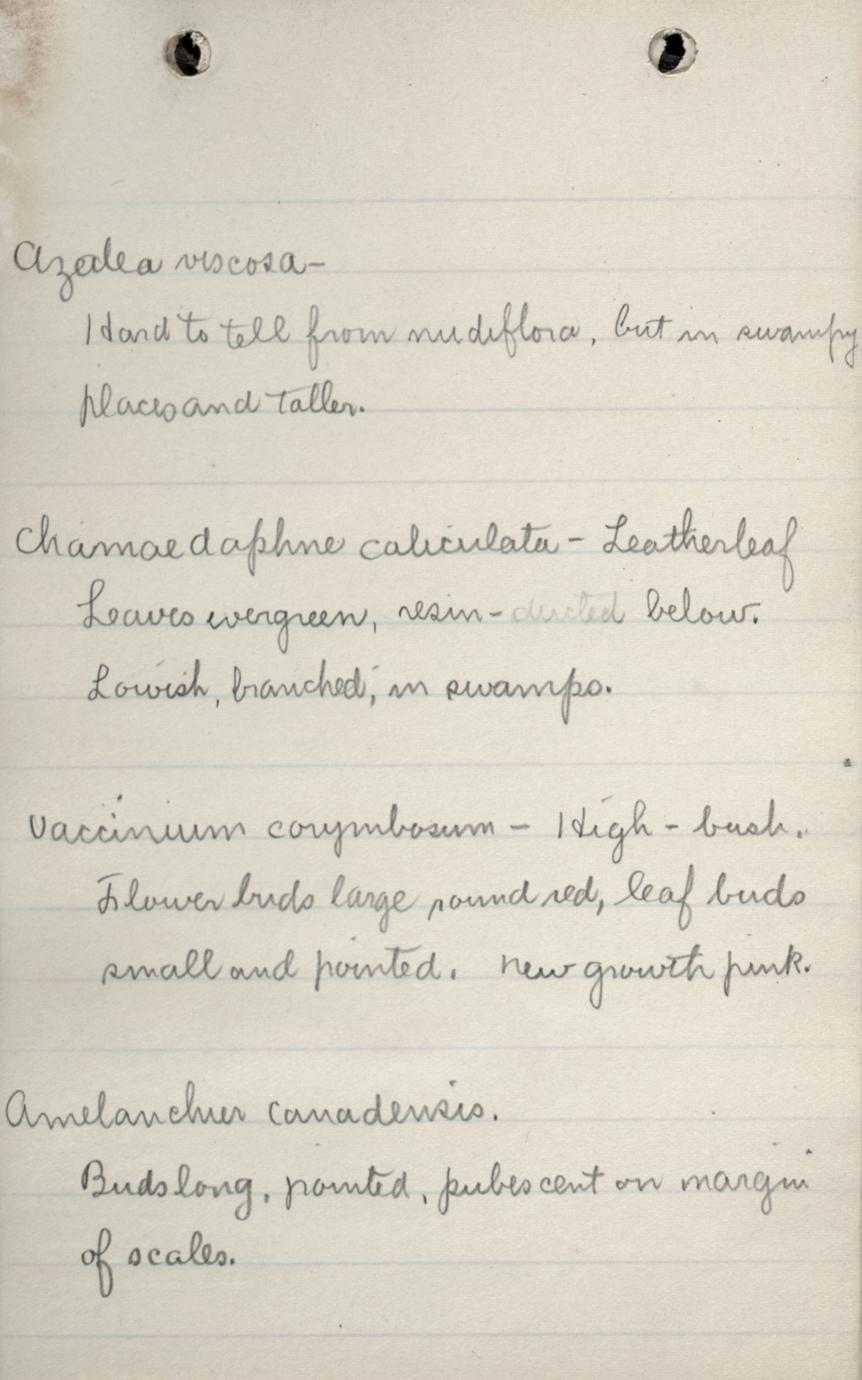 Azalea viscosa-
Hard to tell from nudiflora, but in swampy
places and taller.
Chamaedaphne caliculata - Leatherleaf
Leaves evergreen, resin-ducted below.
Lowish, branched, in swamps.
Vaccinium corymbosum - High-bush.
Flower buds large round red, leaf buds
small and pointed. New growth pink.
Amelanchier canadensis.
Buds long, pointed, pubescent on margin
of scales.